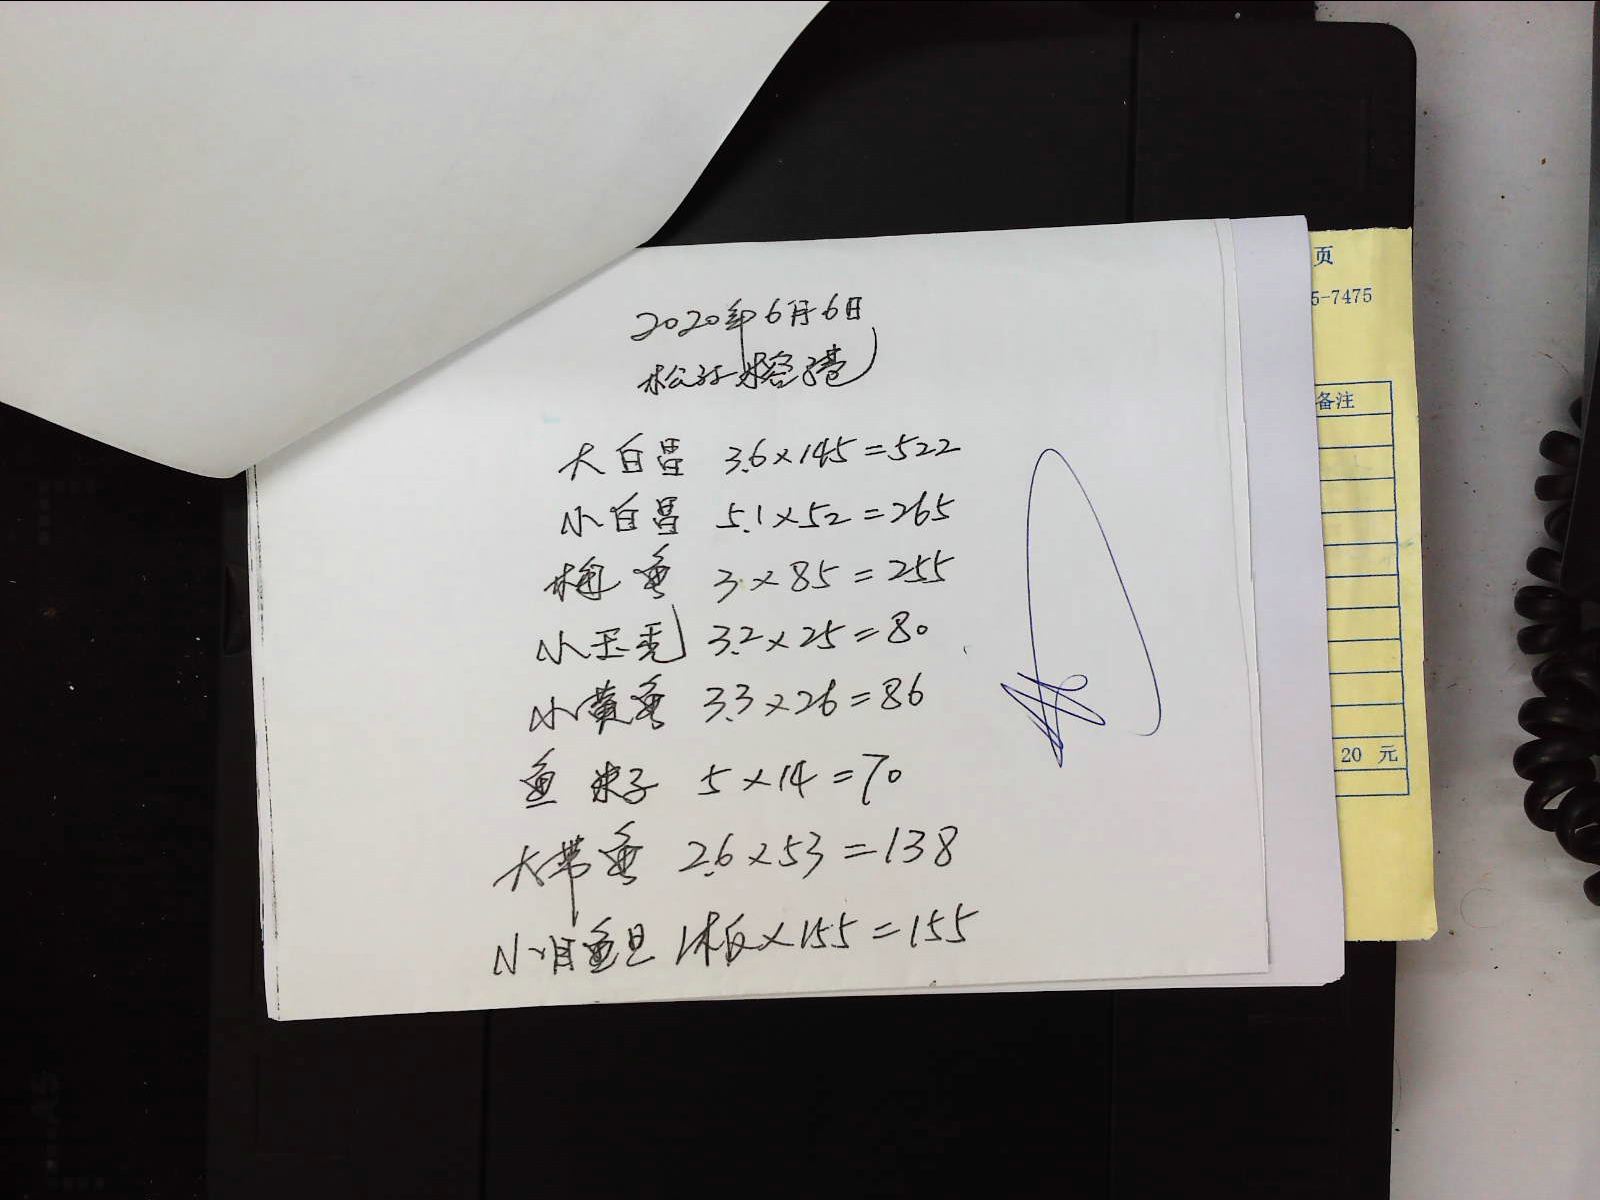 2020年6月6日
松江榕港
大白昌 3.6×145=522
小白昌 5.1×52=265
梅鱼 3×85=255
小玉秃 3.2×25=80
小黄鱼 3.3×26=86
鱼 子 5×14=70
大带鱼 2.6×53=138
小 鱼旦 1板×155=155
页
5-7475
备注
20 元